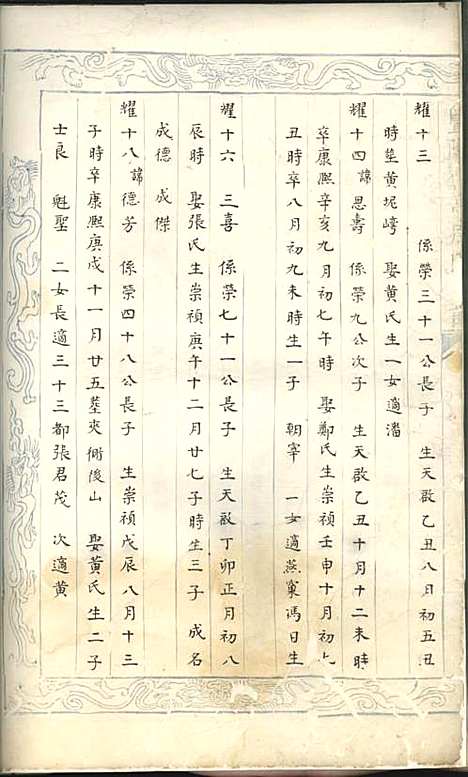 耀十三 係榮三十一公長子 生天啟乙丑八月初五丑
時塟黄坭崎 娶黄氏生一女適潘
耀十四諱恩壽 係榮九公次子 生天啟乙丑十月十二未時
卒康熙辛亥九月初七午時 娶鄭氏生崇禎壬申十月初七
丑時卒八月初九未時生一子 朝宰 一女適燕窠馮日生
耀十六 三喜 係榮七十一公長子 生天啟丁卯正月初八
辰時 娶張氏生崇禎庚午十二月廿七子時生三子 成名
成德 成傑
耀十八諱德芳 係榮四十八公長子 生崇禎戊辰八月十三
子時卒康熙庚戌十一月廿五塟夾衕後山 娶黄氏生二子
士良 魁聖 二女長適三十三都張君茂 次適黄